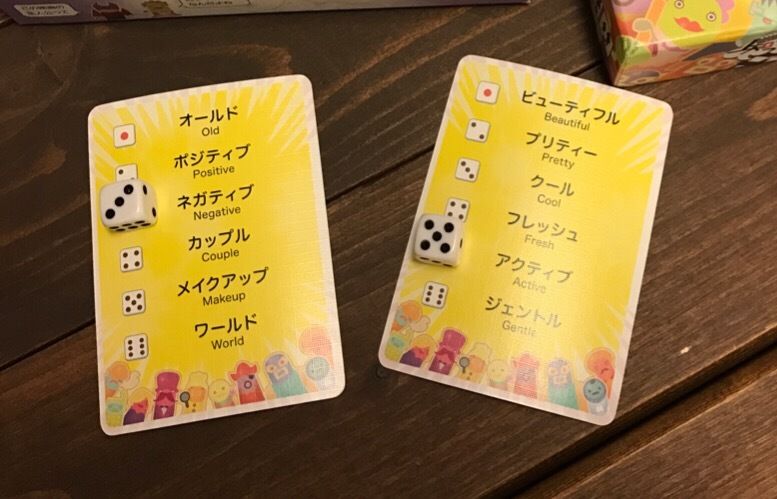 オールド
Old
ポジティブ
Positive
ネガティブ
Negative
カップル
Couple
メイクアップ
Makeup
ワールド
World
ビューティフル
Beautiful
プリティー
Pretty
クール
Cool
フレッシュ
Fresh
アクティブ
Active
ジェントル
Gentle